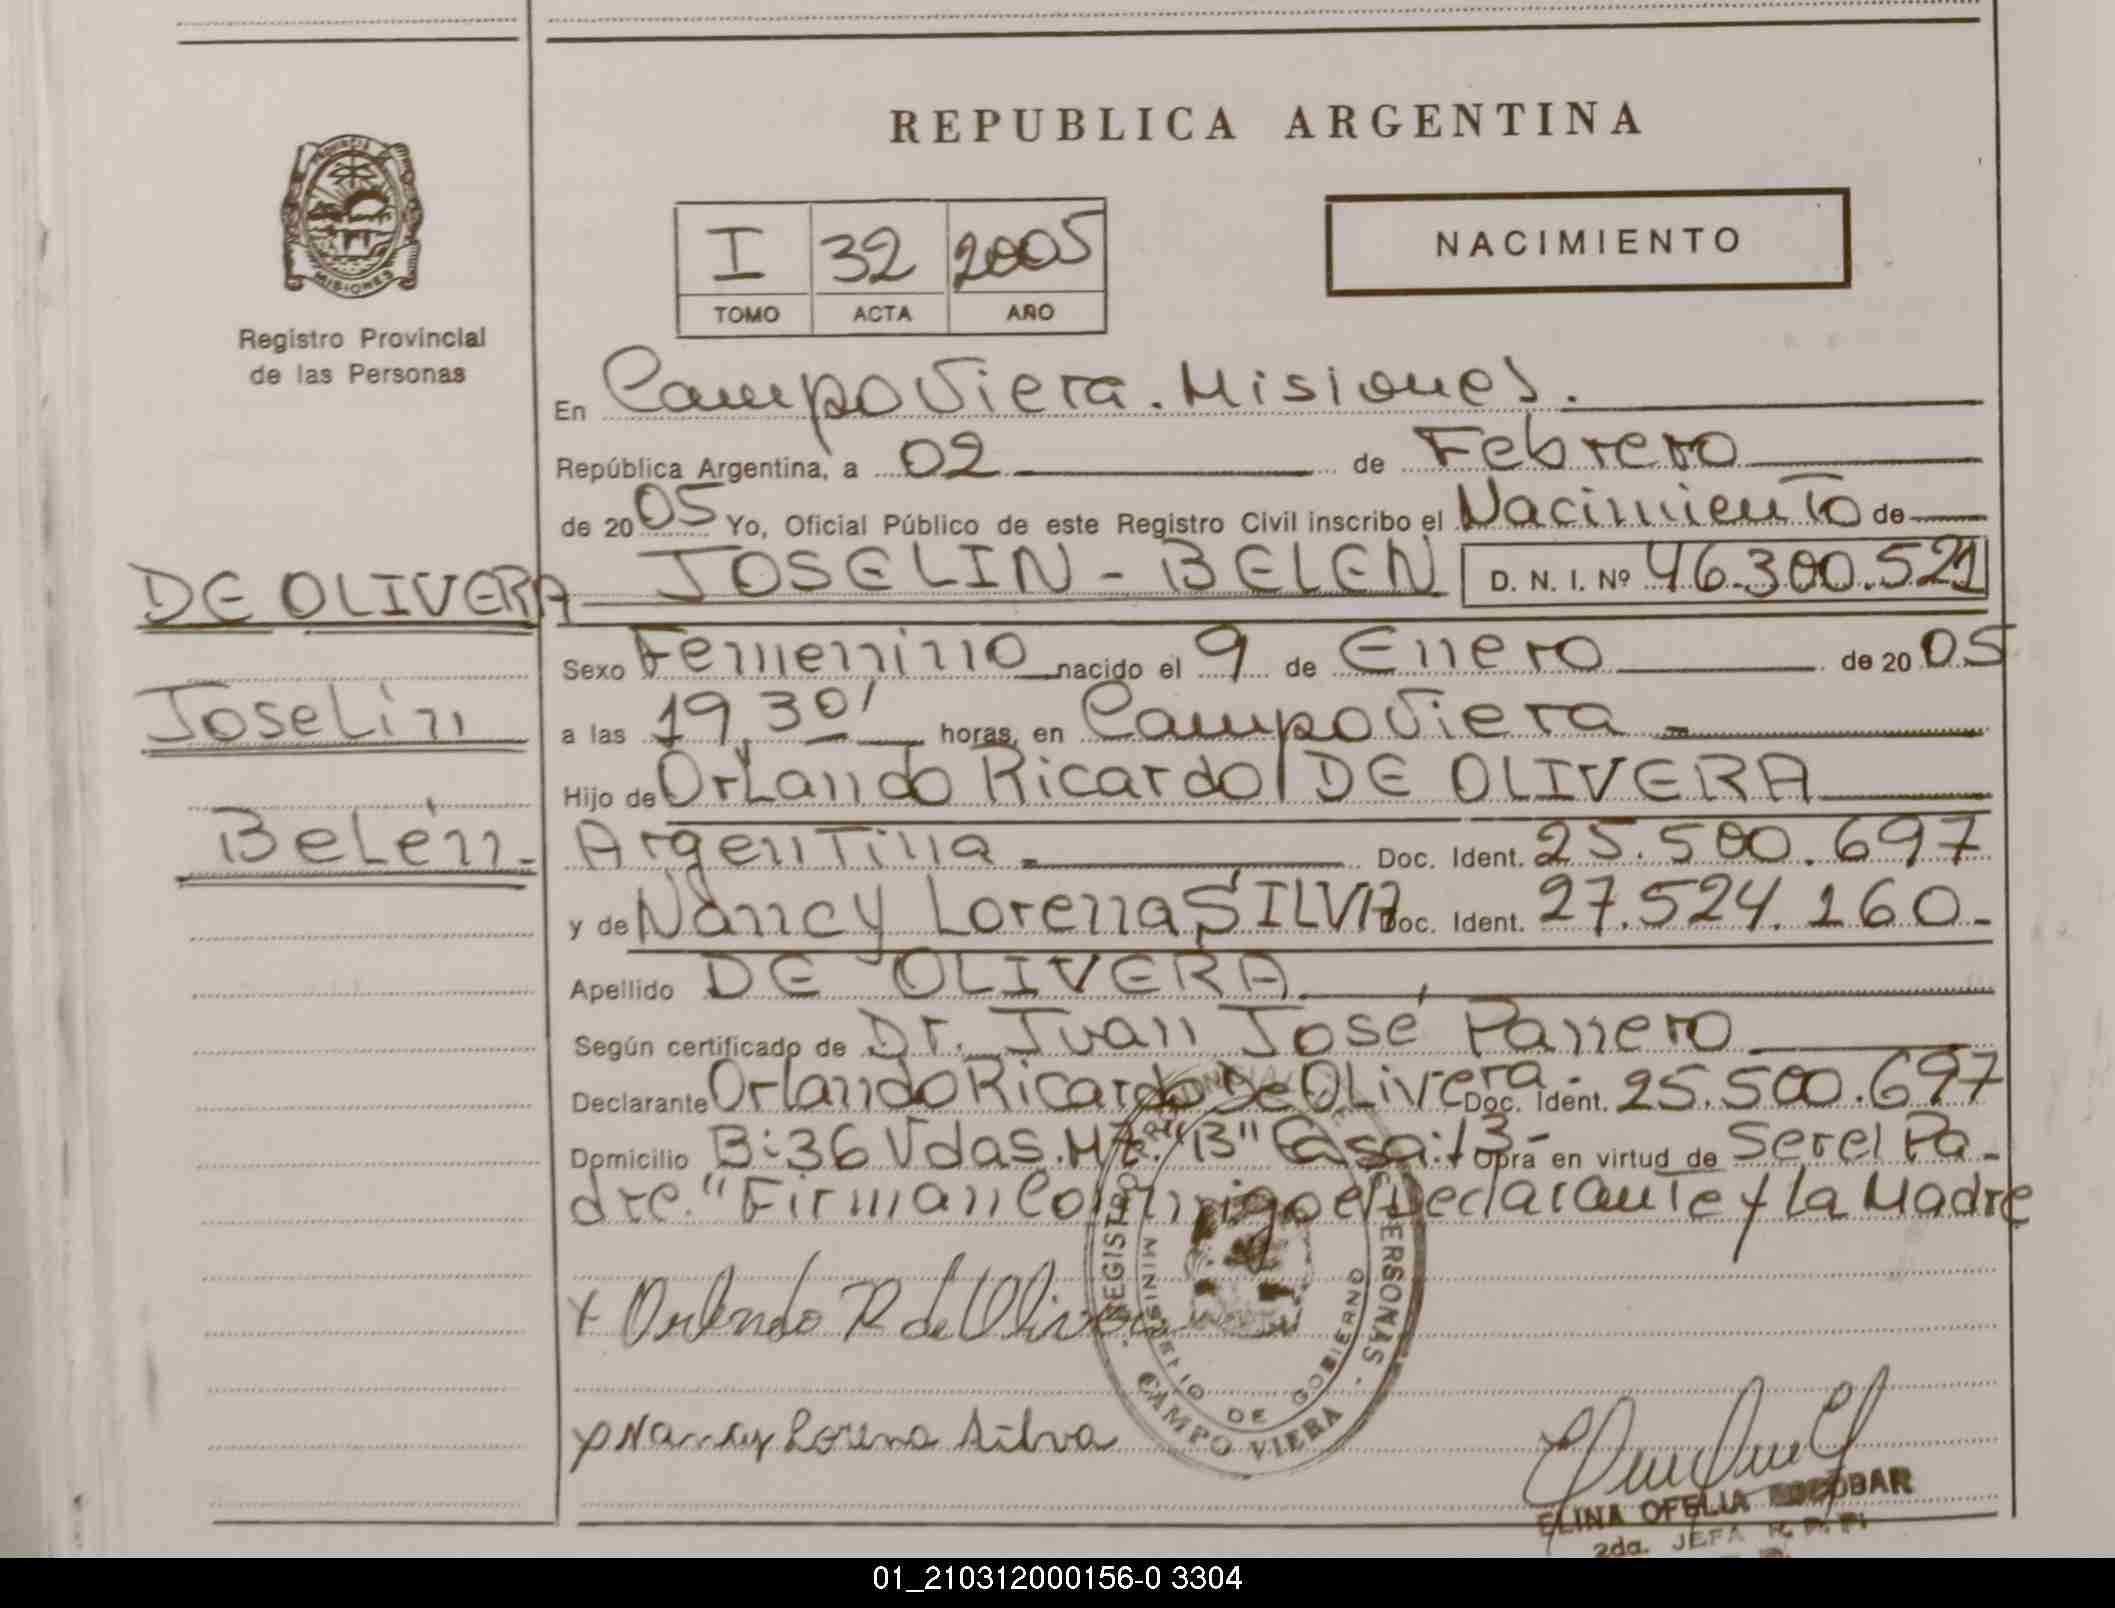 REPUBLICA ARGENTINA
PROVINCIA DE
MISIONES
Registro Provincial
de las Personas
I 32 2005
TOMO ACTA AÑO
NACIMIENTO
En Campo Viera. Misiones.
República Argentina, a 02 de Febrero
de 2005 Yo, Oficial Público de este Registro Civil inscribo el Nacimiento de
DE OLIVERA JOSELIN - BELEN D. N. I. Nº 46.300.521
Sexo Femenino nacido el 9 de Enero de 2005
Joselin
a las 19,30' horas, en Campo Viera
Hijo de Orlando Ricardo DE OLIVERA
Belén.
Argentina Doc. Ident. 25.500.697
y de Nancy Lorena SILVA Doc. Ident. 27.524.160.-
Apellido DE OLIVERA
Según certificado de Dr. Juan José Panero
Declarante Orlando Ricardo De Olivera.- Doc. Ident. 25.500.697
Domicilio B: 36 Vdas. Mz. "B" Casa: 13- Obra en virtud de Ser el Pa-
dre." Firman Conmigo el Declarante y La Madre
x Orlando R de Olivera
x Nancy Lorena Silva
REGISTRO PERSONAS - CAMPO VIERA
MINISTERIO DE GOBIERNO
ELINA OFELIA ESCOBAR
2da. JEFA R. P. P.
01_210312000156-0 3304